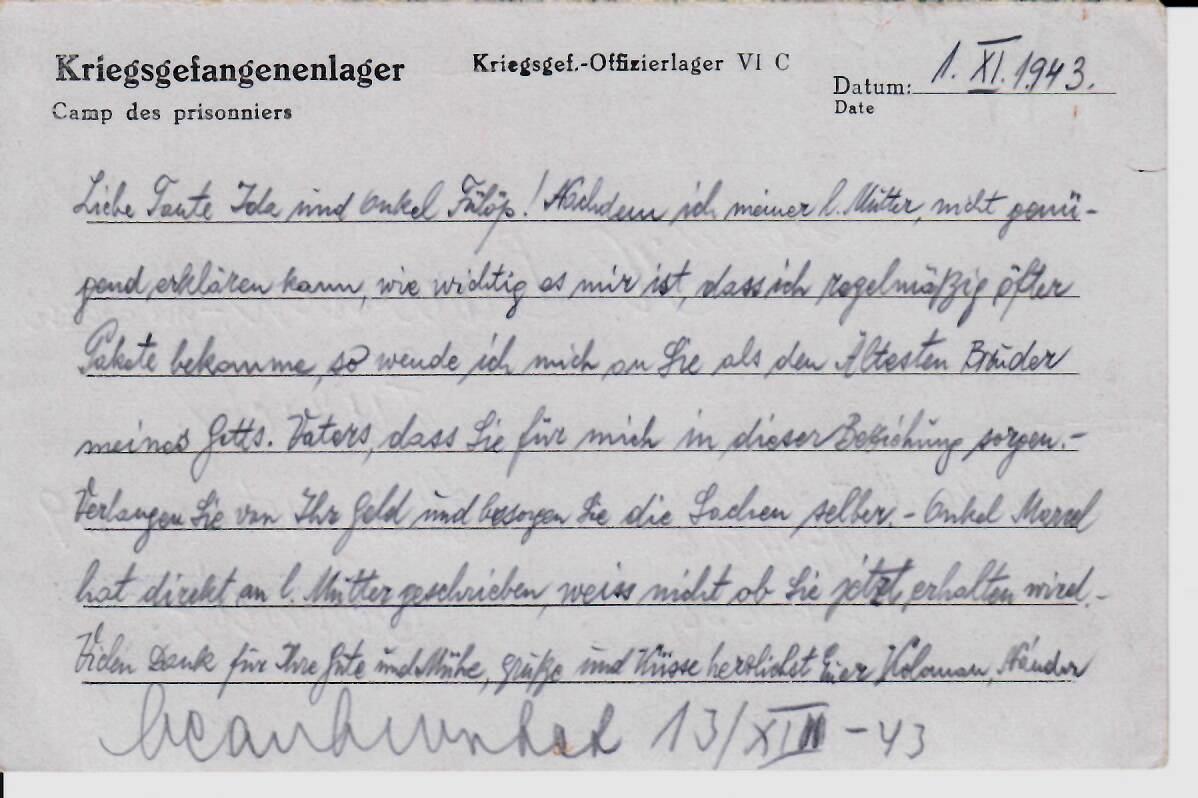 Kriegsgefangenenlager
Camp des prisonniers
Kriegsgef.-Offizierlager VI C
Datum: 1. XI. 1943.
Date
Liebe Tante Ida und Onkel Fülöp! Nachdem ich meiner l. Mutter, nicht genü-
gend erklären kann, wie wichtig es mir ist, dass ich regelmäßig öfter
Pakete bekomme, so wende ich mich an Sie als den Ältesten Bruder
meines Gotts. Vaters, dass Sie für mich in dieser Beziehung sorgen.-
Verlangen Sie von Ihr Geld und besorgen Sie die Sachen selber.- Onkel Marcel
hat direkt an l. Mutter geschrieben, weiss nicht ob Sie jetzt erhalten wird.-
Vielen Dank für Ihre Güte und Mühe, grüße und Küsse herzlichst Euer Koloman, Nándor
13/XII - 43